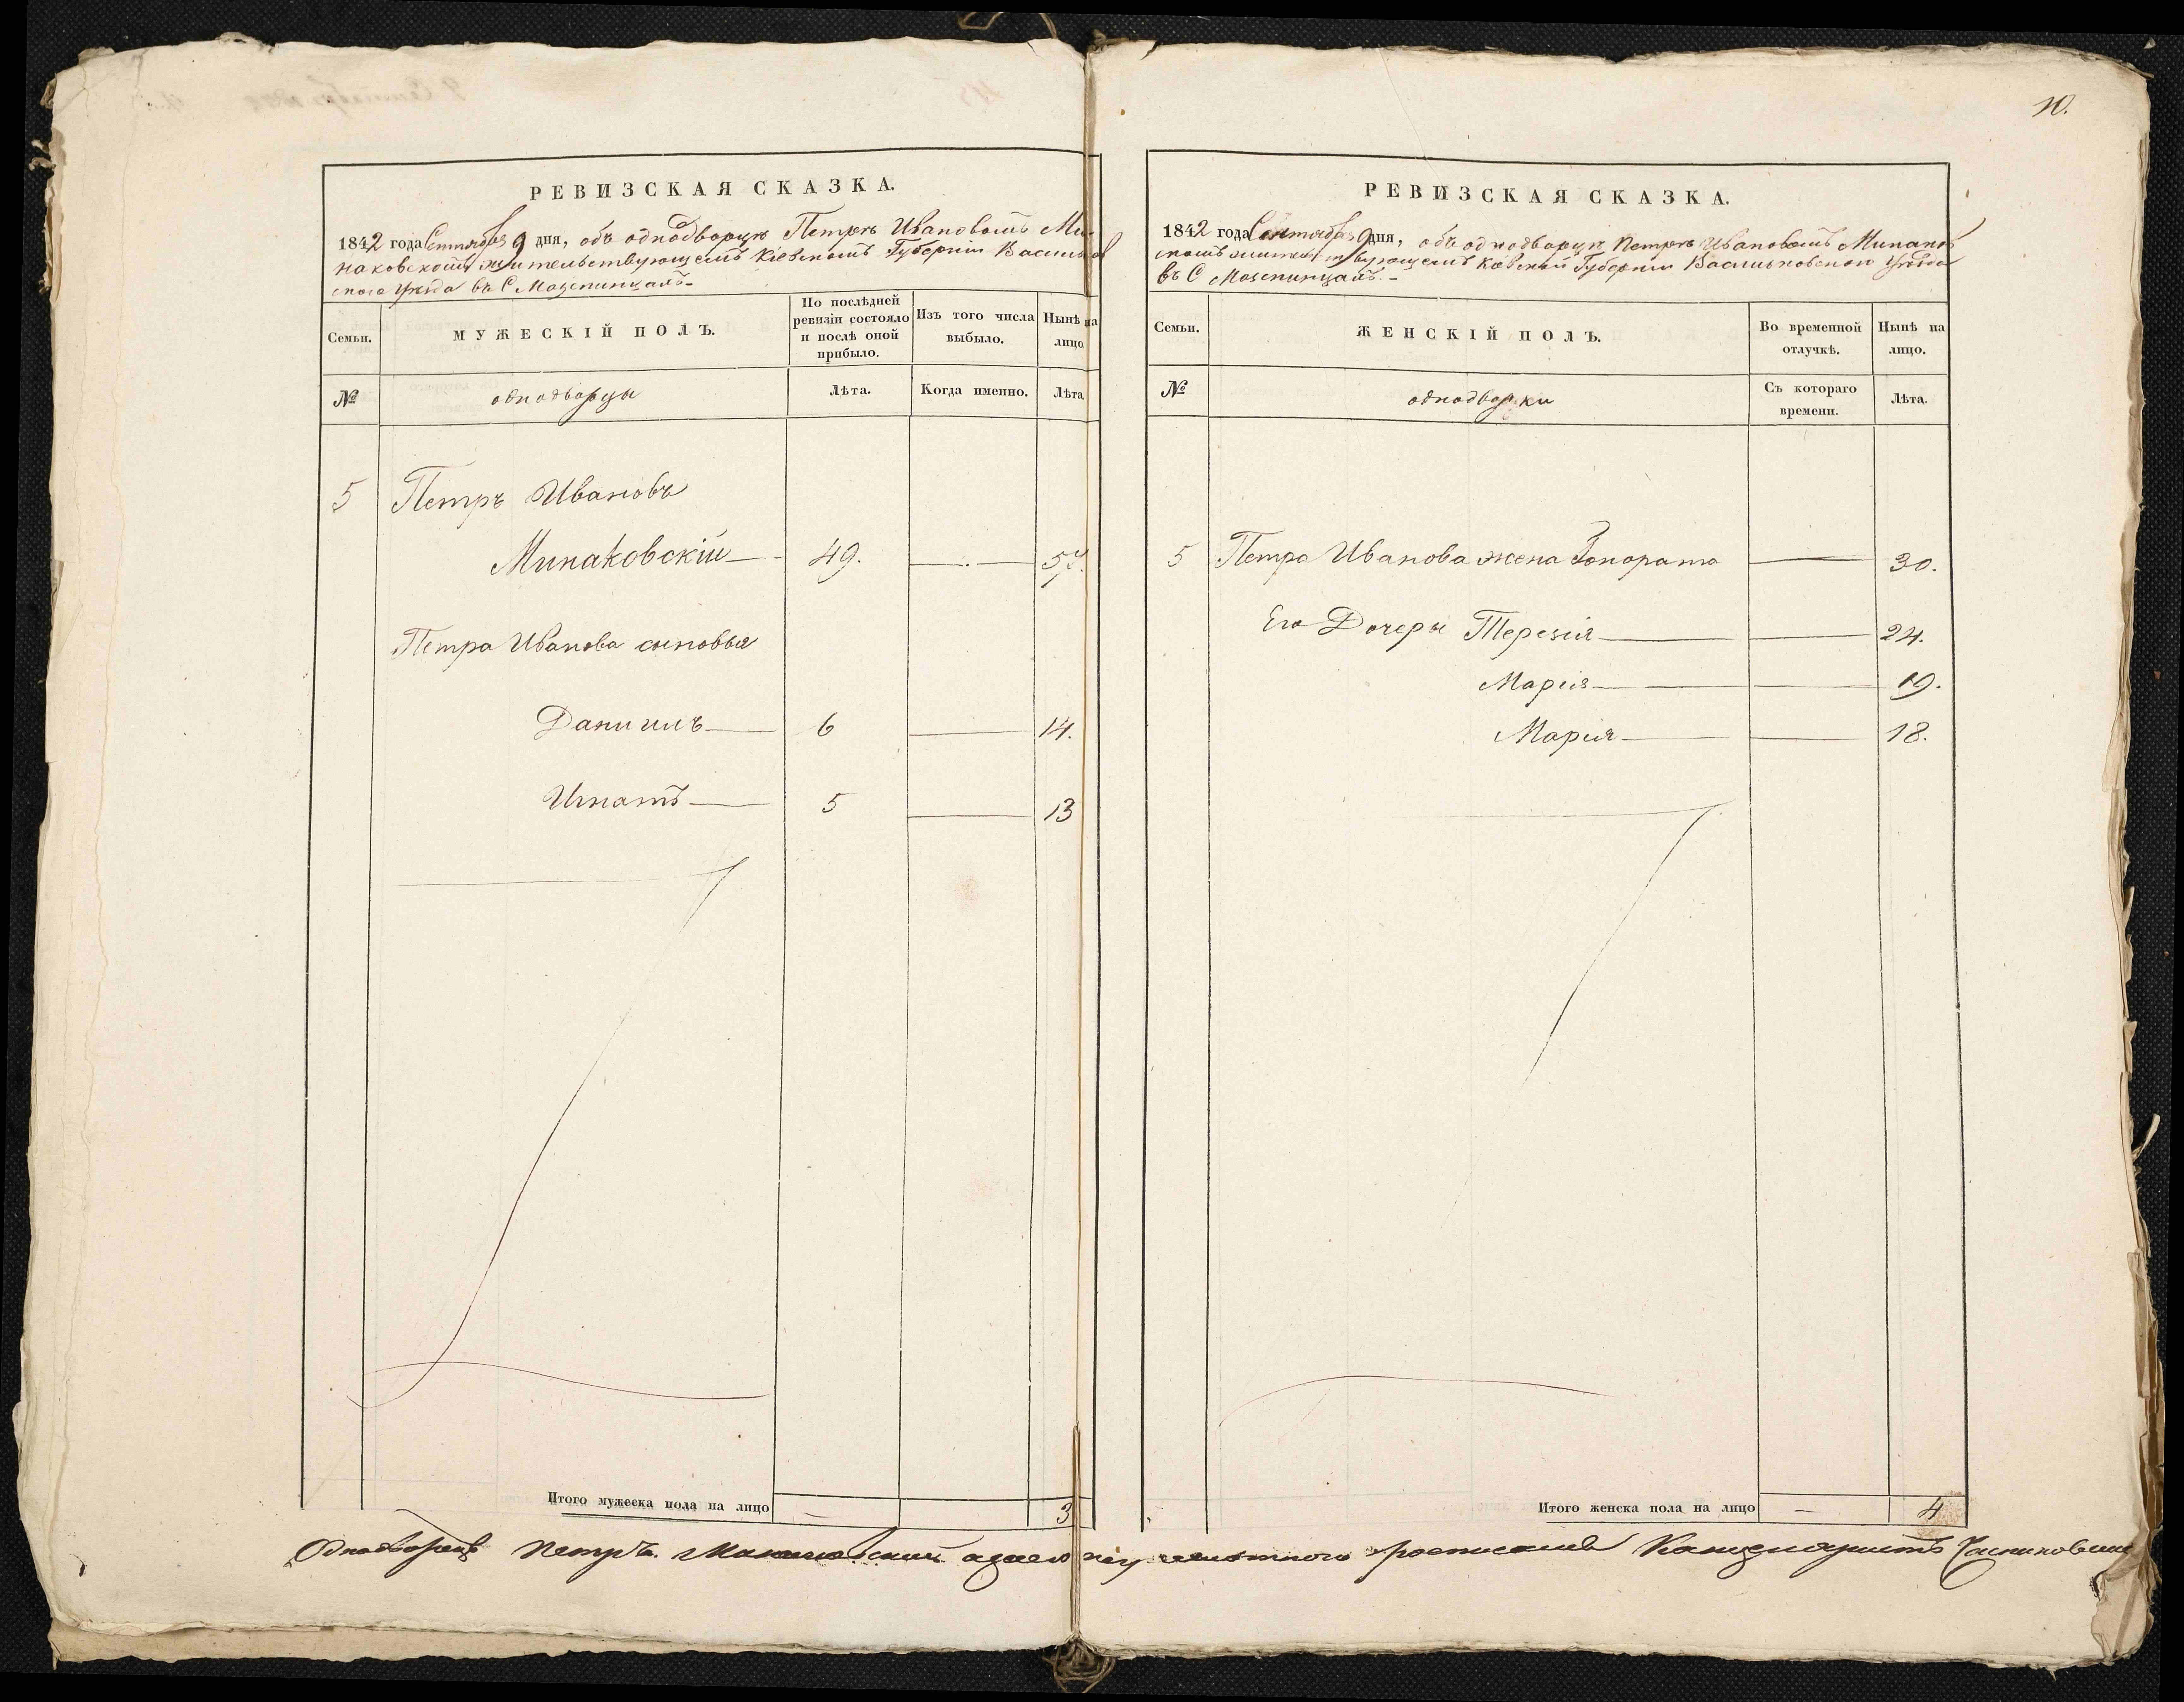 10.
РЕВИЗСКАЯ СКАЗКА.
1842 года Сентября 9 дня, объ однодворцѣ Петрѣ Ивановомъ Ми-
наковскомъ жительствующемъ Кіевскомъ Губерніи Васильков
ского уѣзда въ С Мазепинцахъ
Семьи.
МУЖЕСКІЙ ПОЛЪ.
По послѣдней ревизіи состояло и послѣ оной прибыло.
Изъ того числа выбыло.
Нынѣ на лицо
№
однодворцы
Лѣта.
Когда именно.
Лѣта
5 Петръ Ивановъ
Минаковскій 49. 57.
Петра Иванова сыновья
Даниилъ 6 14.
Игнатъ 5 13
Итого мужеска пола на лицо 3
РЕВИЗСКАЯ СКАЗКА.
1842 года Сентября 9 дня, объ однодворцѣ Петрѣ Ивановомъ Минаков
скомъ жительствующемъ Кіевской Губерніи Васильковского уѣзда
въ С Мазепинцахъ.
Семьи.
ЖЕНСКІЙ ПОЛЪ.
Во временной отлучкѣ.
Нынѣ на лицо.
№
однодворки
Съ котораго времени.
Лѣта.
5 Петра Иванова жена Гонората 30.
Его Дочеры Терезія 24.
Марія 19.
Марія 18.
Итого женска пола на лицо 4
Однодворецъ Петръ. а за его неграмотного росписался Канцеляристъ